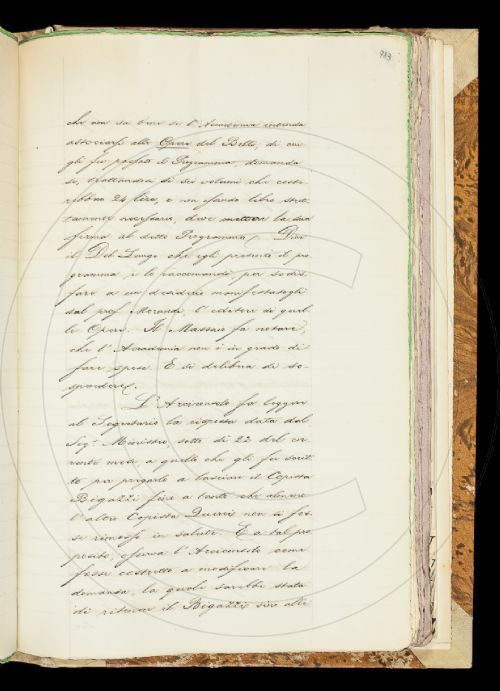 983
che non sa bene se l'Accademia intenda
associarsi alle Opere del Betti, di cui
gli fu passato il Programma, domanda
se, trattandosi di sei volumi che coste-
rebbono 24 lire, e non essendo libro stret-
tamente necessario, deve mettere la sua
firma al detto Programma. Dice
il Del Lungo che egli presentò il pro-
gramma, e lo raccomandò, per sodis-
fare a un desiderio manifestatogli
dal prof. Morandi, l'editore di quel-
le Opere. Il Massaio fa notare,
che l'Accademia non è in grado di
fare spese. E si delibera di so-
spendere.
L'Arciconsolo fa leggere
al Segretario la risposta data dal
Sig. Ministro sotto di 22 del cor-
rente mese, a quella che gli fu scrit-
ta per pregarlo a lasciare il Copista
Bigazzi fino a tanto che almeno
l'altro Copista non si fos-
se rimesso in salute. E a tal pro-
posito, osserva l'Arciconsolo come
fosse costretto a modificare la
domanda, la quale sarebbe stata
di ritenere il Bigazzi sino alla